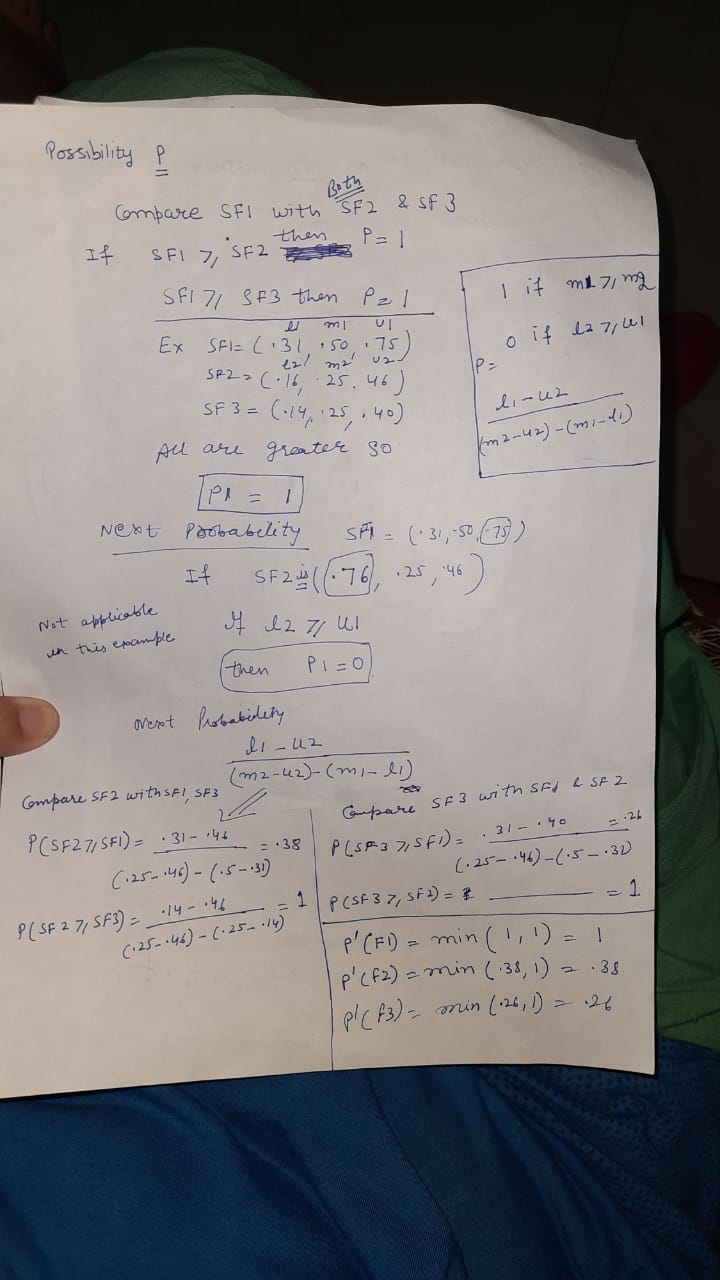 Possibility P
Both
Compare SF1 with SF2 & SF3
If SF1 ⩾ SF2 then P = 1
SF1 ⩾ SF3 then P = 1
l1 m1 u1
Ex SF1 = (.31 .50 .75)
l2 m2 u2
SF2 = (.16, .25, .46)
SF3 = (.14, .25, .40)
All are greater so
P1 = 1
1 if m1 ⩾ m2
0 if l2 ⩾ u1
P =
l1 - u2
(m2-u2) - (m1-l1)
Next Probability SF1 = (.31, .50, .75)
If SF2 is (.76, .25, .46)
Not applicable
in this example
If l2 ⩾ u1
then P1 = 0
Next Probability
l1 - u2
(m2-u2) - (m1-l1)
Compare SF2 with SF1, SF3
P(SF2 ⩾ SF1) = .31 - .46 = .38
(.25-.46) - (.5-.31)
P(SF2 ⩾ SF3) = .14 - .46 = 1
(.25-.46) - (.25-.14)
Compare SF3 with SF1 & SF2
P(SF3 ⩾ SF1) = .31 - .40 = .26
(.25-.46) - (.5-.32)
P(SF3 ⩾, SF2) = = 1
P'(F1) = min (1, 1) = 1
P'(f2) = min (.38, 1) = .38
P'(f3) = min (.26, 1) = .26